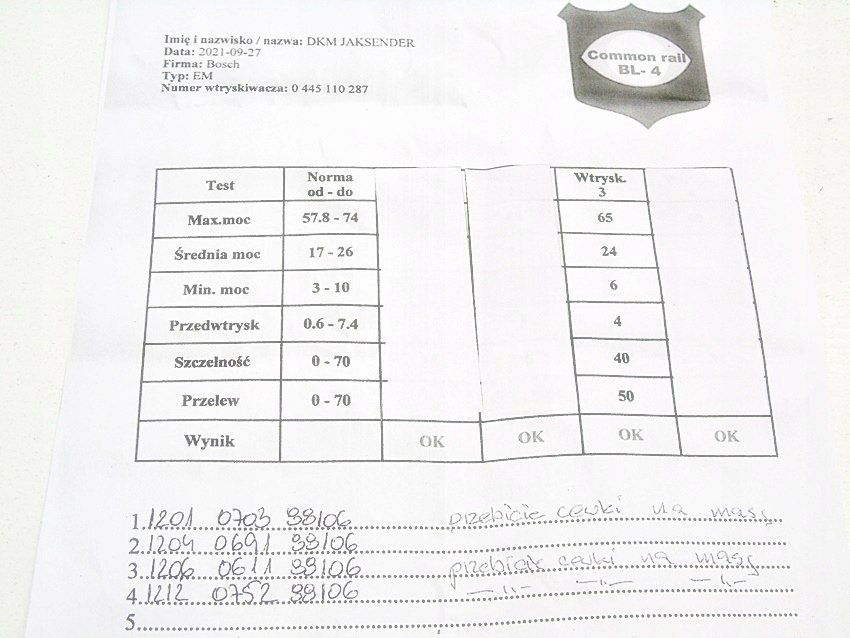 Imię i nazwisko / nazwa: DKM JAKSENDER
Data: 2021-09-27
Firma: Bosch
Typ: EM
Numer wtryskiwacza: 0 445 110 287
Common rail
BL- 4
Test Norma od - do Wtrysk. 3
Max.moc 57.8 - 74 65
Średnia moc 17 - 26 24
Min. moc 3 - 10 6
Przedwtrysk 0.6 - 7.4 4
Szczelność 0 - 70 40
Przelew 0 - 70 50
Wynik OK OK OK OK
1. 1201 0703 88106 przebicie cewki na masę
2. 1204 0691 88106
3. 1206 0611 88106 przebicie cewki na masę
4. 1212 0752 88106 —„— —„— —„—
5.